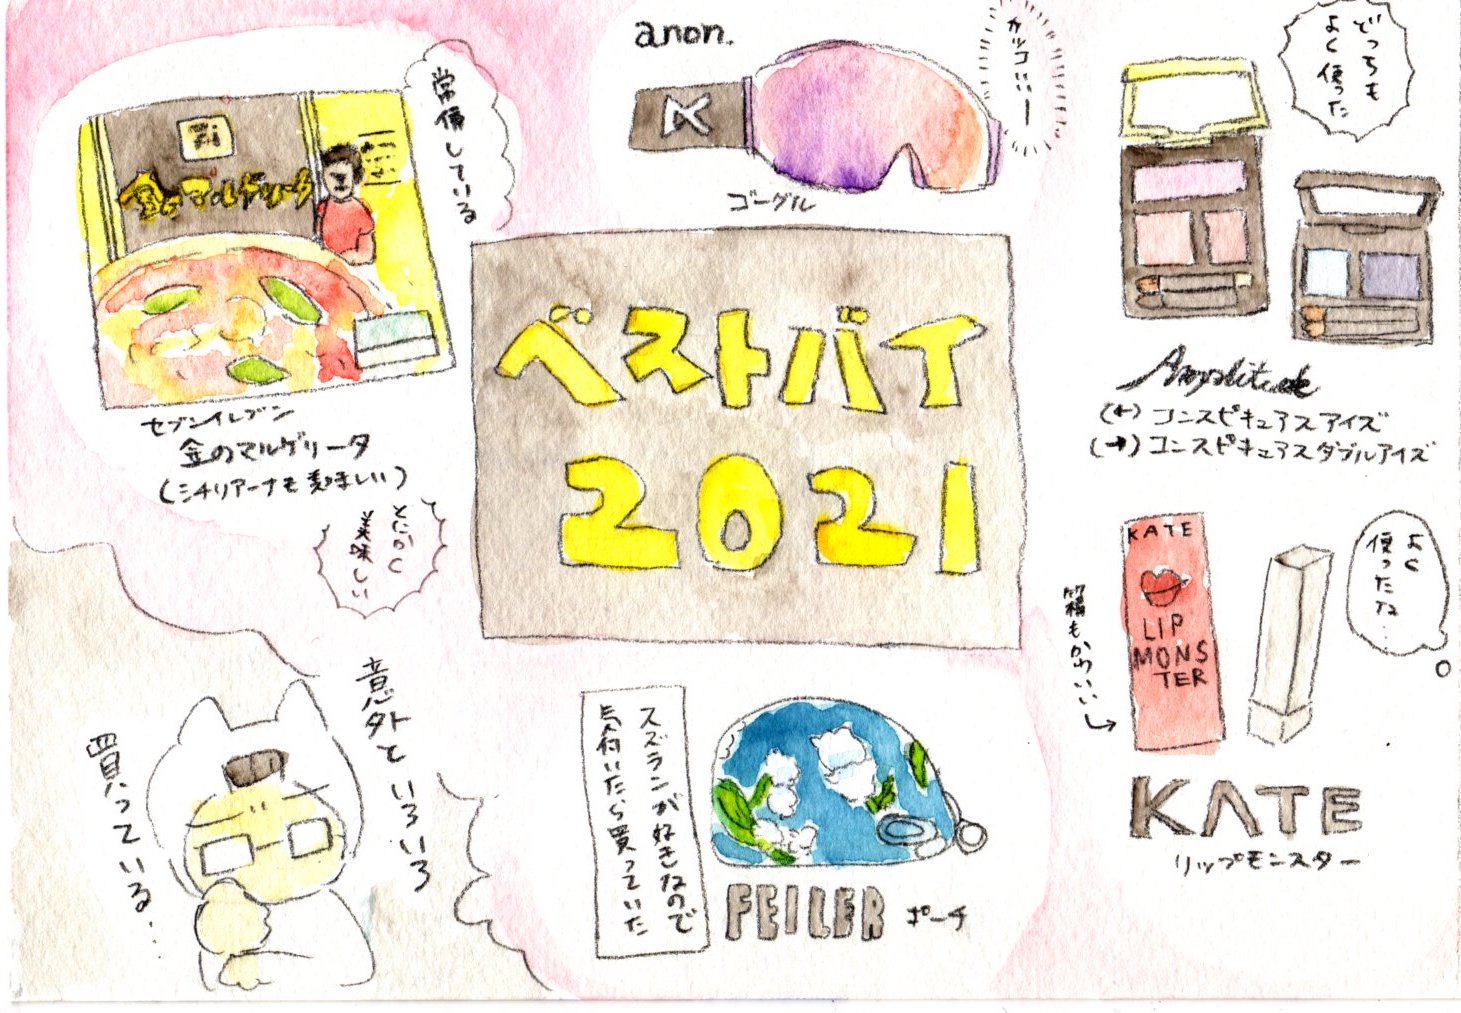 常備している
金のマルゲリータ
セブンイレブン
金のマルゲリータ
(シチリアーナも美味しい)
とにかく
美味しい
anon.
カッコいいー
ゴーグル
ベストバイ
2021
どっちも
よく使った
Amplitude
(←)コンスピキュアスアイズ
(→)コンスピキュアスダブルアイズ
KATE
LIP
MONS
TER
よく
使ったな…
もかわいい
KATE
リップモンスター
スズランが好きなので
気付いたら買っていた
FEILER ポーチ
意外といろいろ
買っている…